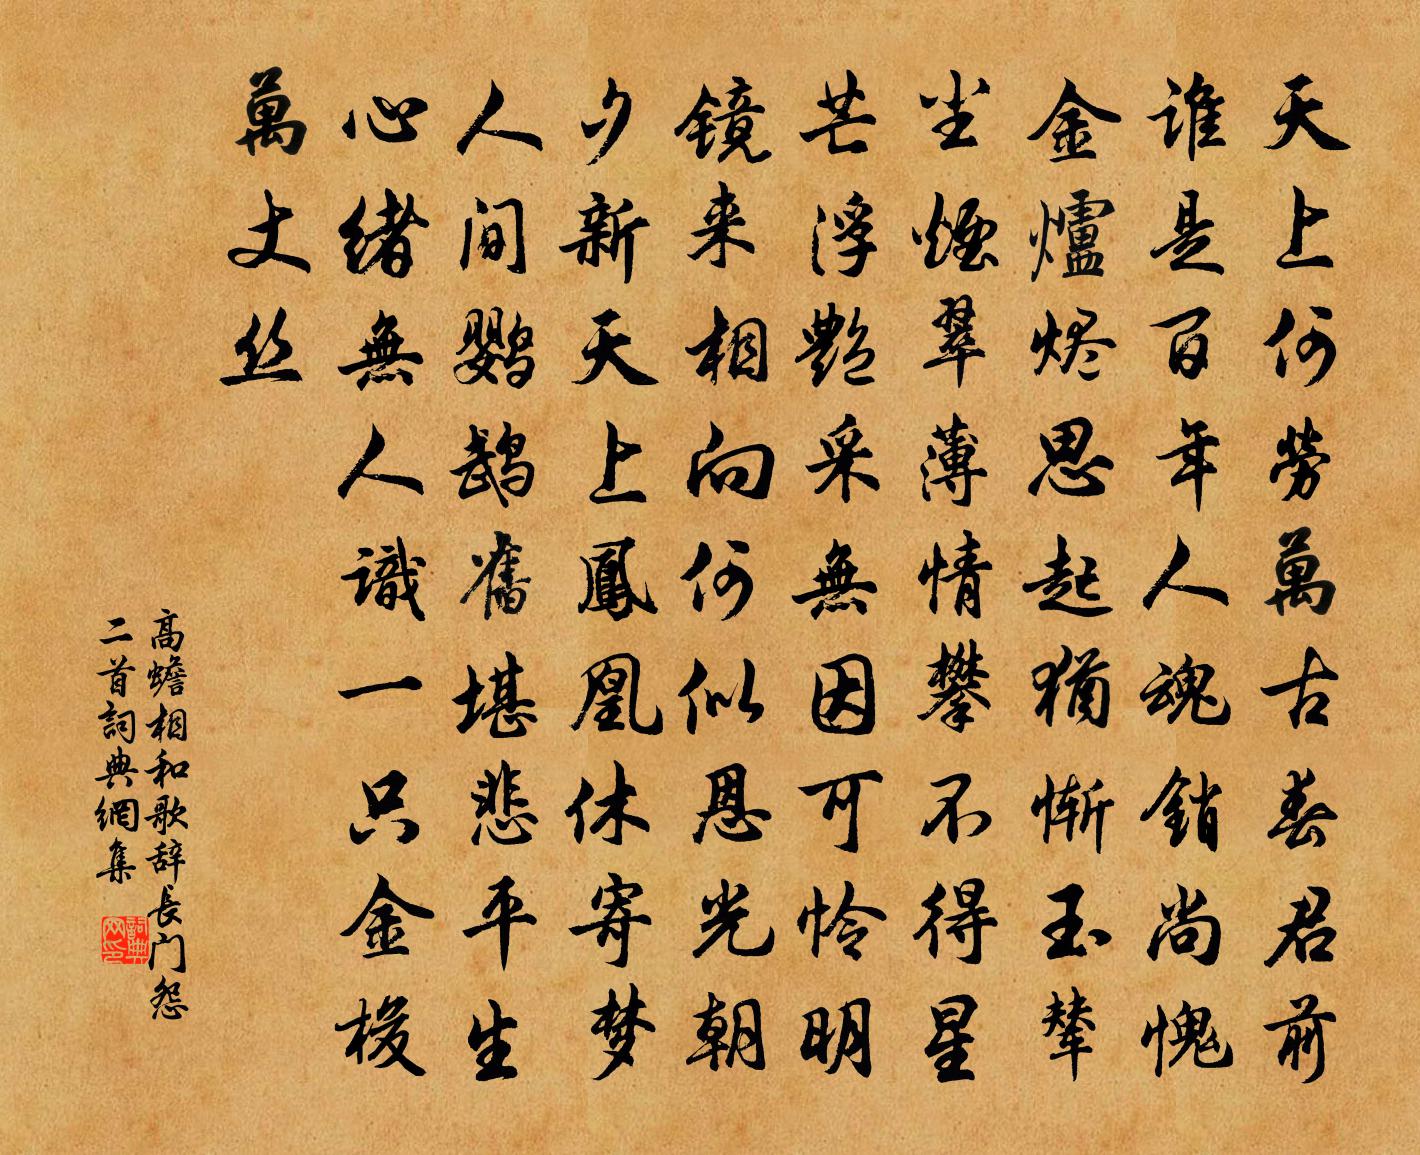 天上何勞萬古春君前
谁是百年人魂銷尚愧
金爐烬思起猶惭玉輦
尘煙翠薄情攀不得星
芒浮艷采無因可怜明
镜来相向何似恩光朝
夕新天上鳳凰休寄梦
人间鹦鹉舊堪悲平生
心緒無人識一只金梭
萬丈丝
高蟾相和歌辞長门怨
二首詞典網集
詞典网印